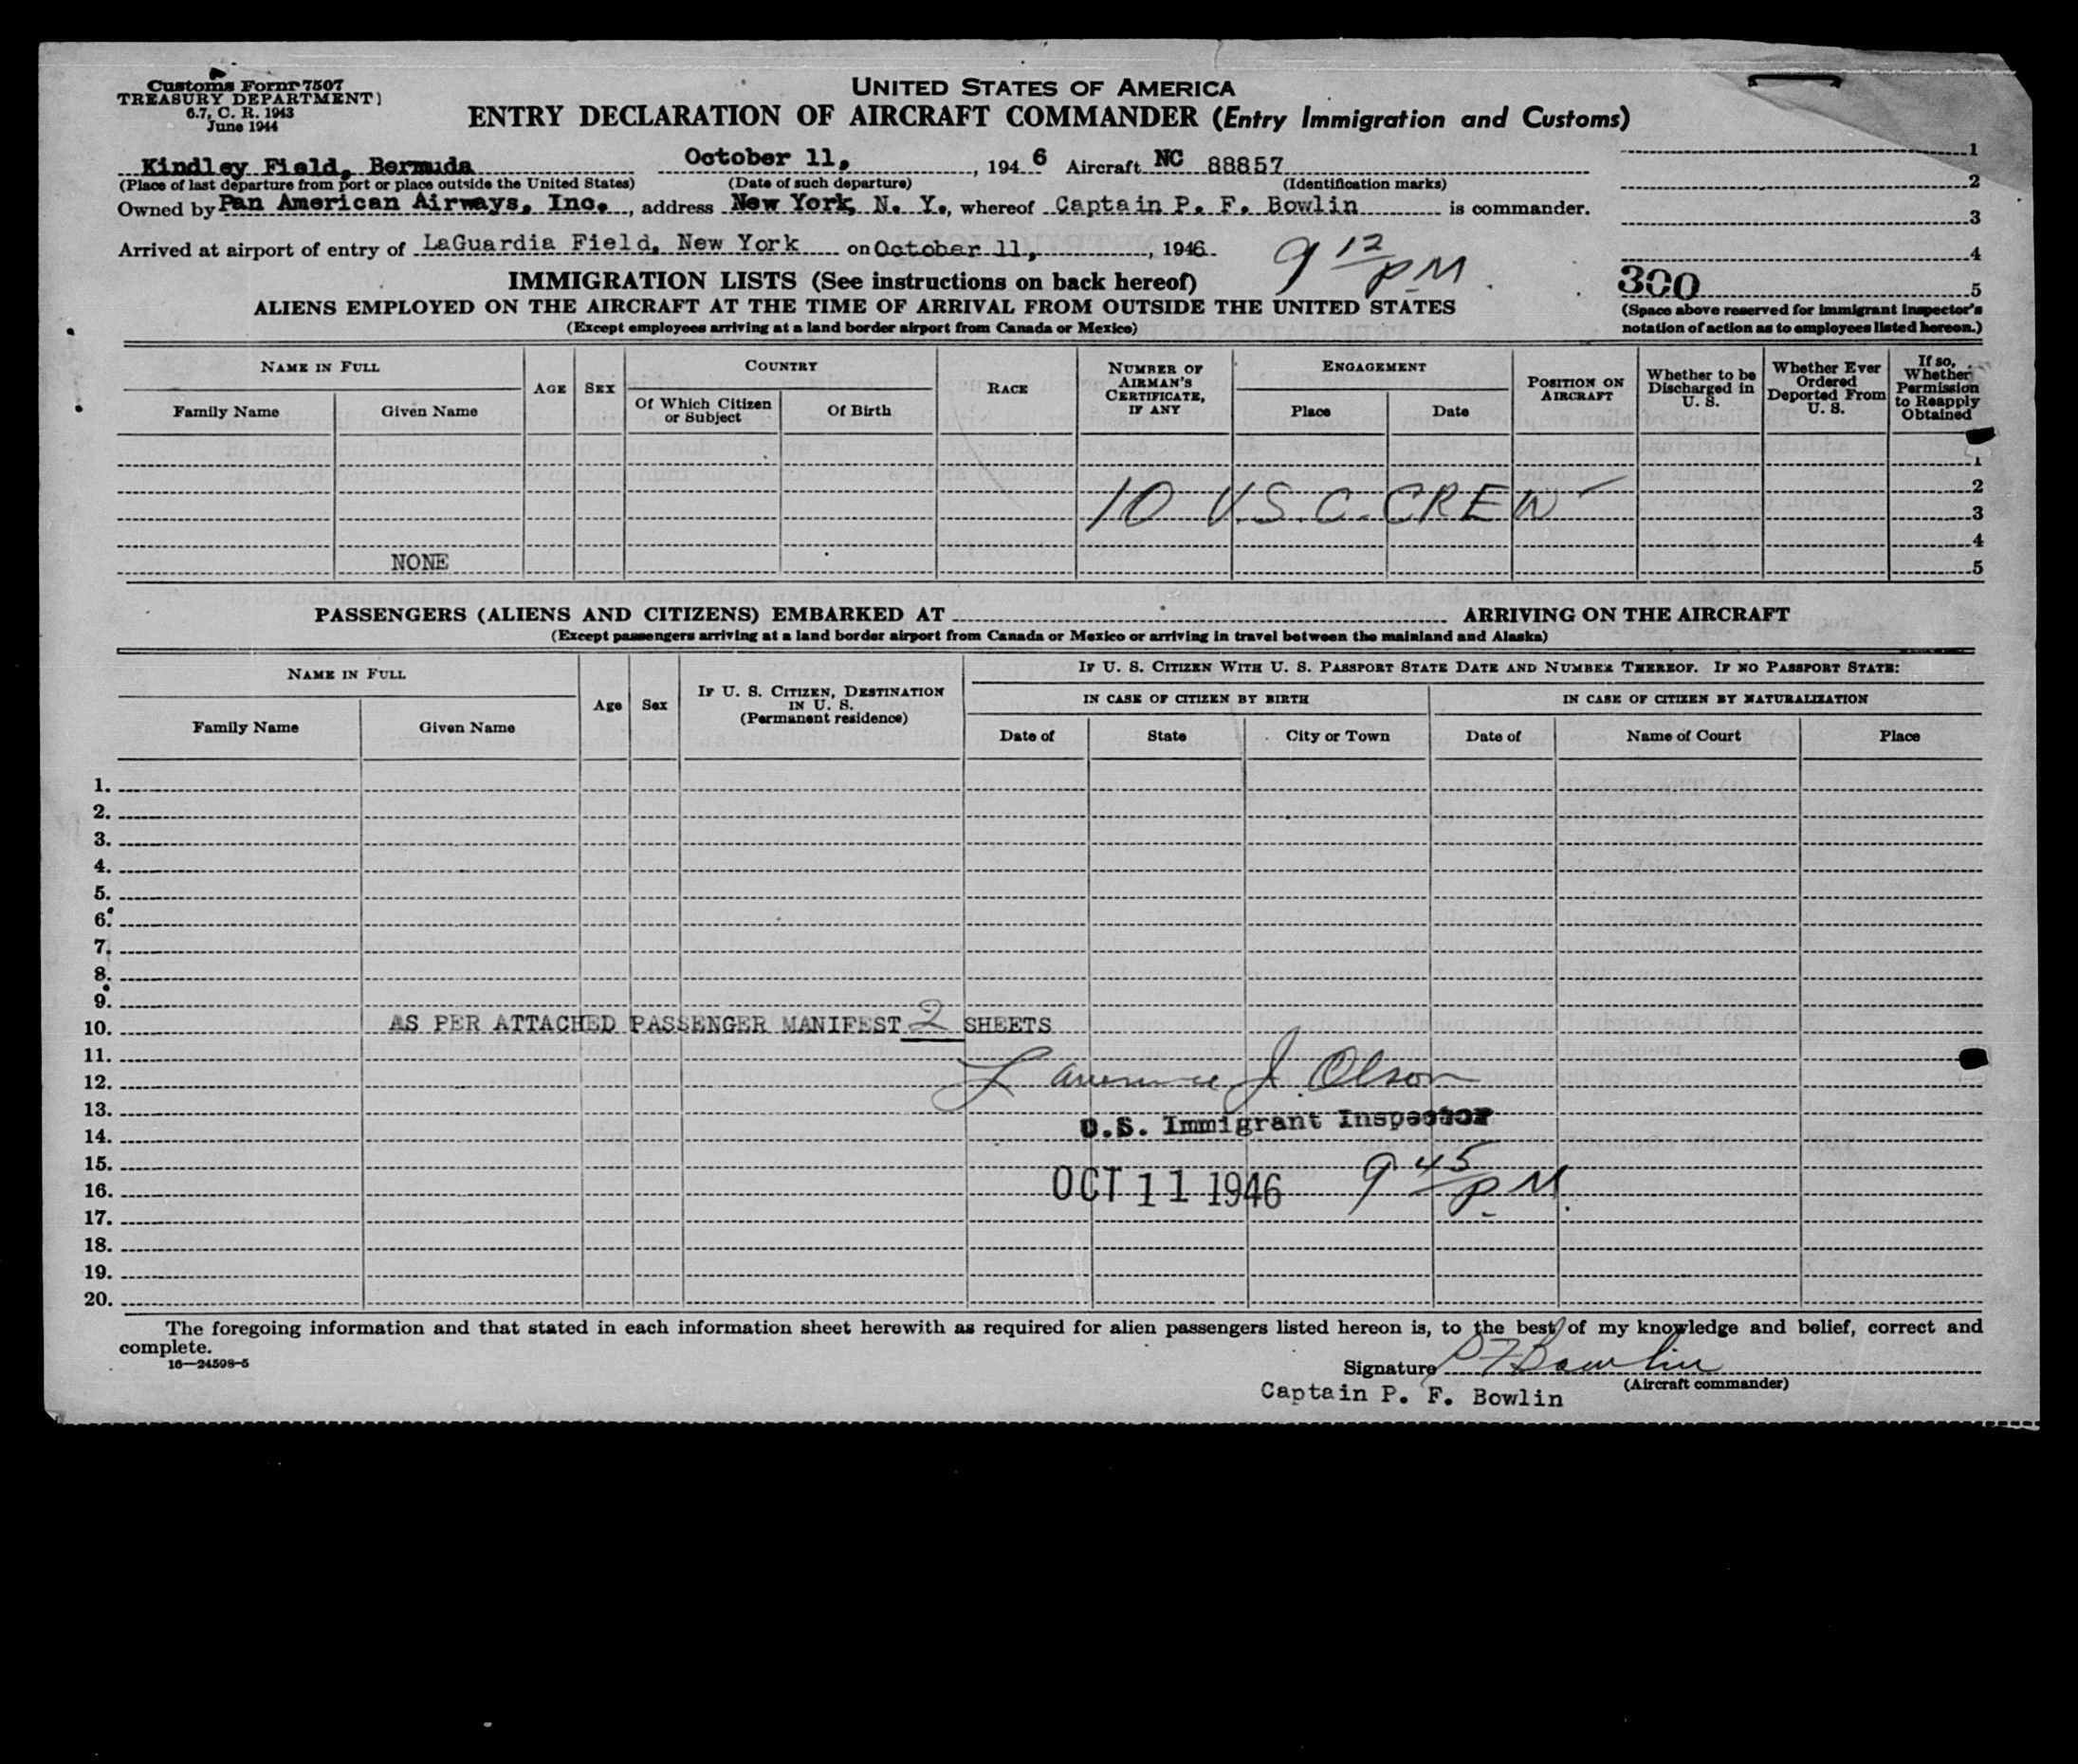 Customs Form 7507
TREASURY DEPARTMENT)
6.7, C. R. 1943
June 1944
UNITED STATES OF AMERICA
ENTRY DECLARATION OF AIRCRAFT COMMANDER (Entry Immigration and Customs)
Kindley Field, Bermuda October 11, , 194 6 Aircraft NC 88857
(Place of last departure from port or place outside the United States) (Date of such departure) (Identification marks)
Owned by Pan American Airways, Inc. , address New York, N. Y., whereof Captain P. F. Bowlin is commander.
Arrived at airport of entry of LaGuardia Field, New York on October 11, , 1946
9 12 PM
1
2
3
4
300 5
(Space above reserved for Immigrant Inspector's
notation of action as to employees listed hereon.)
IMMIGRATION LISTS (See instructions on back hereof)
ALIENS EMPLOYED ON THE AIRCRAFT AT THE TIME OF ARRIVAL FROM OUTSIDE THE UNITED STATES
(Except employees arriving at a land border airport from Canada or Mexico)
NAME IN FULL
Family Name Given Name
AGE SEX
COUNTRY
Of Which Citizen or Subject Of Birth
RACE
NUMBER OF AIRMAN'S CERTIFICATE, IF ANY
ENGAGEMENT
Place Date
POSITION ON AIRCRAFT
Whether to be Discharged in U. S.
Whether Ever Ordered Deported From U. S.
If so, Whether Permission to Reapply Obtained
1
2
10 U.S.C. CREW
3
4
NONE 5
PASSENGERS (ALIENS AND CITIZENS) EMBARKED AT ARRIVING ON THE AIRCRAFT
(Except passengers arriving at a land border airport from Canada or Mexico or arriving in travel between the mainland and Alaska)
NAME IN FULL
Family Name Given Name
Age Sex
IF U. S. CITIZEN, DESTINATION IN U. S. (Permanent residence)
IF U. S. CITIZEN WITH U. S. PASSPORT STATE DATE AND NUMBER THEREOF. IF NO PASSPORT STATE:
IN CASE OF CITIZEN BY BIRTH IN CASE OF CITIZEN BY NATURALIZATION
Date of State City or Town Date of Name of Court Place
1.
2.
3.
4.
5.
6.
7.
8.
9.
10. AS PER ATTACHED PASSENGER MANIFEST 2 SHEETS
11.
12. Lawrence J. Olson
13.
14. U.S. Immigrant Inspector
15.
16. OCT 11 1946 9 45 P.M.
17.
18.
19.
20.
The foregoing information and that stated in each information sheet herewith as required for alien passengers listed hereon is, to the best of my knowledge and belief, correct and
complete.
16—24598-5
Signature P F Bowlin
(Aircraft commander)
Captain P. F. Bowlin